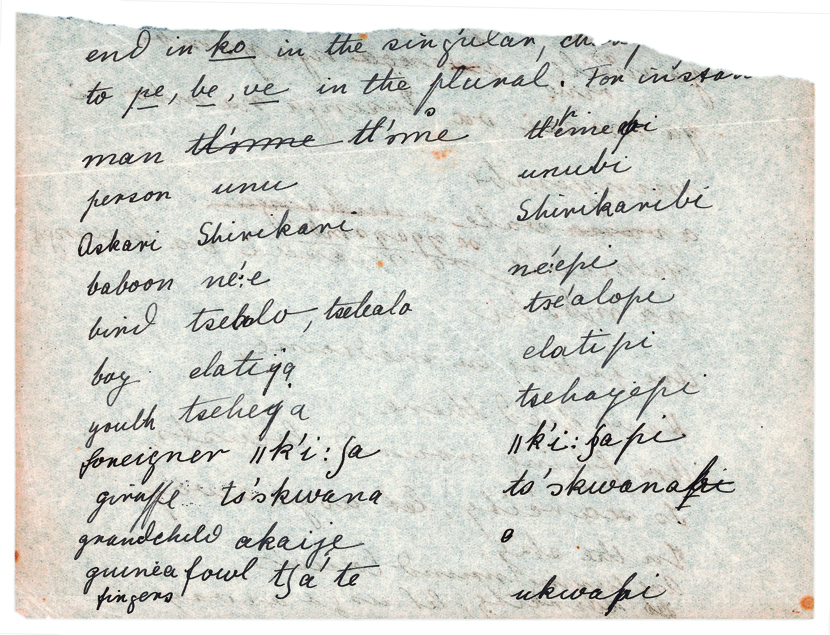 end in ko in the singular,
to pe, be, ve in the plural. For instan
man tl'ome tl'ome tl'emepi
person unu unubi
Askari Shirikari Shirikaribi
baboon ne:e ne:epi
bird tsebalo, tsealo tse'alopi
boy elatiya elatipi
youth tseheya tsehayepi
foreigner ǁk'i:ʃa ǁk'i:ʃapi
giraffe ts'okwana ts'okwanapi
grandchild akaije
guinea fowl tʃa'te
fingers ukwapi